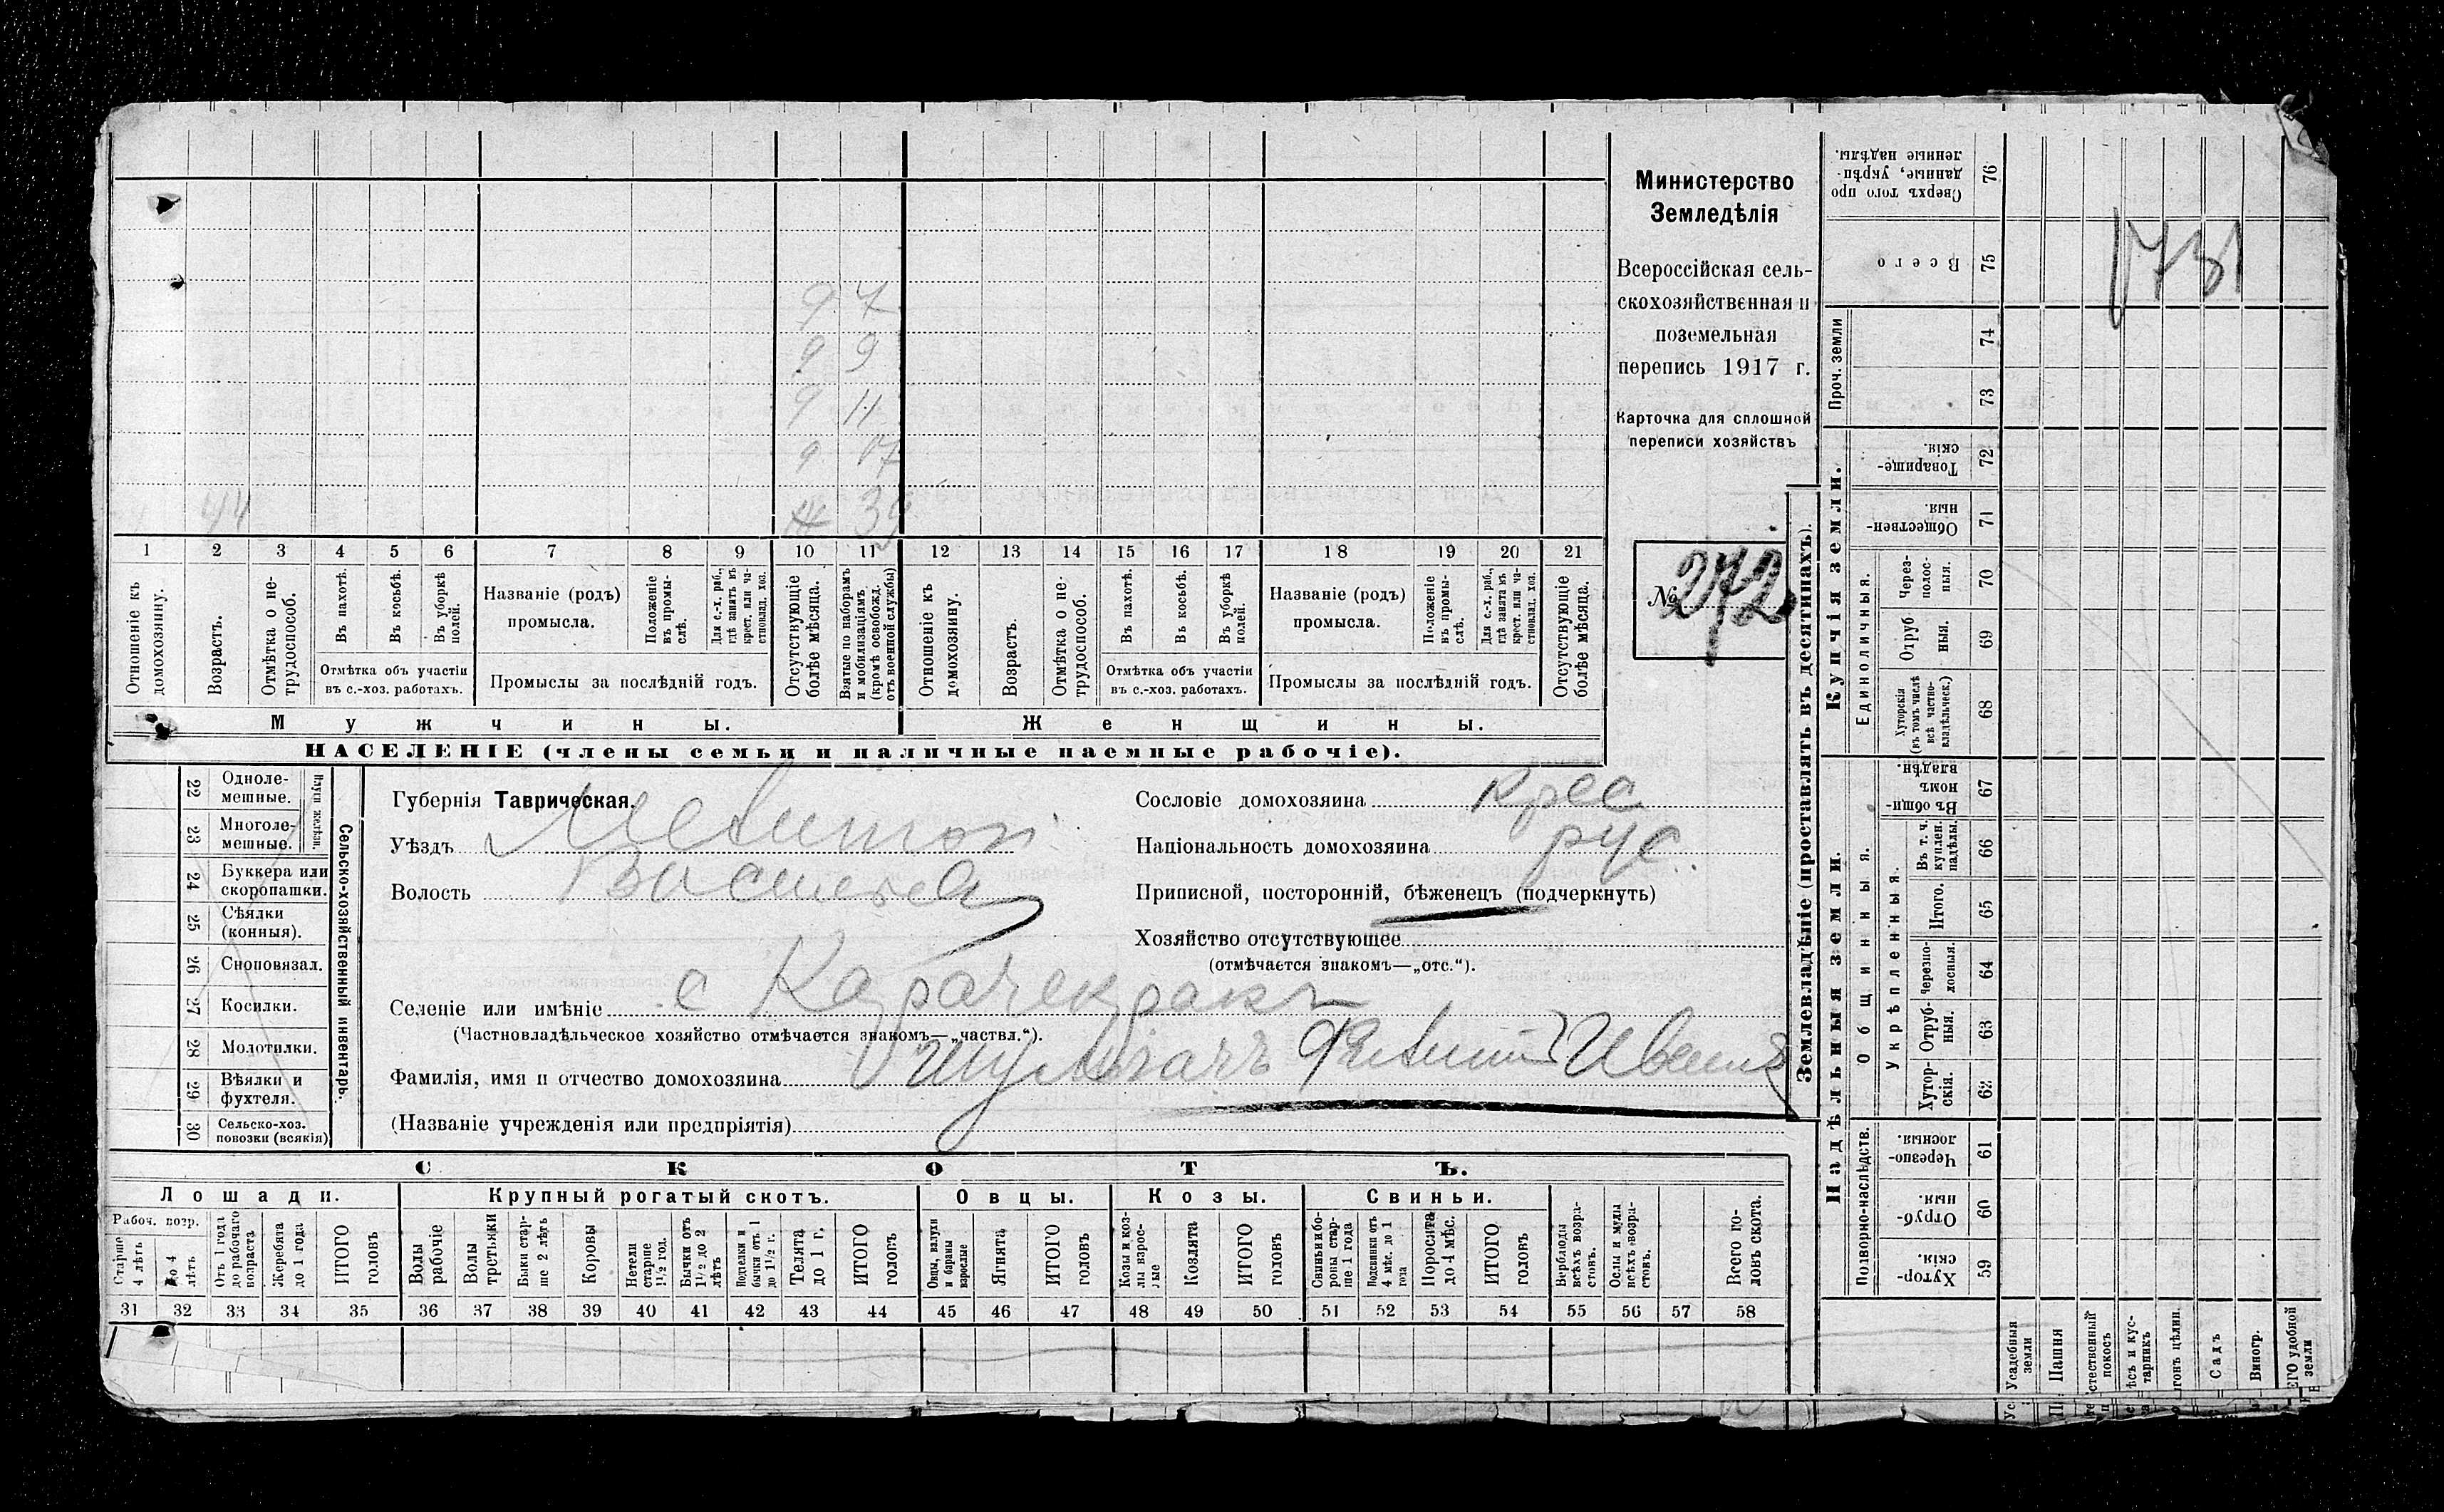 Министерство
Земледѣлія
Всероссійская сель-
скохозяйственная и
поземельная
перепись 1917 г.
Карточка для сплошной
переписи хозяйствъ
№ 272
1731
9 7
9 9
9 11
9 17
44 Ж 39
1 2 3 4 5 6 7 8 9 10 11 12 13 14 15 16 17 18 19 20 21
Отношеніе къ домохозяину.
Возрастъ.
Отмѣтка о не-трудоспособ.
Въ пахотѣ.
Въ косьбѣ.
Въ уборкѣ полей.
Отмѣтка объ участіи въ с.-хоз. работахъ.
Названіе (родъ) промысла.
Положеніе въ промы-слѣ.
Для с.-х. раб., гдѣ занятъ въ крест. или ча-стновлад. хоз.
Промыслы за послѣдній годъ.
Отсутствующіе болѣе мѣсяца.
Взятые по наборамъ и мобилизаціямъ (кромѣ освобожд. отъ военной службы)
Отношеніе къ домохозяину.
Возрастъ.
Отмѣтка о не-трудоспособ.
Въ пахотѣ.
Въ косьбѣ.
Въ уборкѣ полей.
Отмѣтка объ участіи въ с.-хоз. работахъ.
Названіе (родъ) промысла.
Положеніе въ промы-слѣ.
Для с.-х. раб., гдѣ занята въ крест. или ча-стновлад. хоз.
Промыслы за послѣдній годъ.
Отсутствующіе болѣе мѣсяца.
Мужчины. Женщины.
НАСЕЛЕНІЕ (члены семьи и наличные наемные рабочіе).
Сельско-хозяйственный инвентарь.
Плуги желѣзн.
22 Одноле-мешные.
23 Многоле-мешные.
24 Буккера или скоропашки.
25 Сѣялки (конныя).
26 Сноповязал.
27 Косилки.
28 Молотилки.
29 Вѣялки и фухтеля.
30 Сельско-хоз. повозки (всякія)
Губернія Таврическая.
Уѣздъ Мелитоп
Волость Васильев
Селеніе или имѣніе с Карачекракъ
(Частновладѣльческое хозяйство отмѣчается знакомъ—„частвл.“).
Фамилія, имя и отчество домохозяина Филип Иван
(Названіе учрежденія или предпріятія)
Сословіе домохозяина крес
Національность домохозяина рус.
Приписной, посторонній, бѣженецъ (подчеркнуть)
Хозяйство отсутствующее
(отмѣчается знакомъ—„отс.“).
СКОТЪ.
Лошади. Крупный рогатый скотъ. Овцы. Козы. Свиньи.
Рабоч. возр.
Старше 4 лѣтъ
До 4 лѣтъ
Отъ 1 года до рабочаго возраста
Жеребята до 1 года
ИТОГО головъ
Волы рабочіе
Волы третьяки
Быки стар-ше 2 лѣтъ
Коровы
Нетели старше 1½ год.
Бычки отъ 1½ до 2 лѣтъ
Подтелки и бычки отъ 1 до 1½ г.
Телята до 1 г.
ИТОГО головъ
Овцы, валухи и бараны взрослые
Ягнята
ИТОГО головъ
Козы и коз-лы взрос-лые
Козлята
ИТОГО головъ
Свиньи и бо-ровы стар-ше 1 года
Подсвинки отъ 4 мѣс. до 1 года
Поросята до 4 мѣс.
ИТОГО головъ
Верблюды всѣхъ возра-стовъ.
Ослы и мулы всѣхъ возра-стовъ.
Всего го-ловъ скота.
31 32 33 34 35 36 37 38 39 40 41 42 43 44 45 46 47 48 49 50 51 52 53 54 55 56 57 58
Землевладѣніе (проставлять въ десятинахъ).
Надѣльныя земли. Купчія земли. Проч. земли
Подворно-наслѣдств.
Общинныя.
Укрѣпленныя.
Единоличныя.
Хутор-скія. 59
Отруб-ныя. 60
Черезпо-лосныя. 61
Хутор-скія. 62
Отруб-ныя. 63
Черезпо-лосныя. 64
Итого. 65
Въ т. ч. куплен. надѣлы. 66
Въ общи-номъ владѣн. 67
Хуторскія (въ томъ числѣ всѣ частно-владѣльческ.) 68
Отруб ныя. 69
Через-полос-ныя. 70
Обществен-ныя. 71
Товарище-скія. 72
73
74
Всего 75
Сверхъ того про данные, укрѣп-ленные надѣлы. 76
Усадебныя земли
Пашня
стественный покосъ
ѣсъ и кус-тарникъ
гонъ цѣлин.
Садъ
Виногр.
ЕГО удобной земли